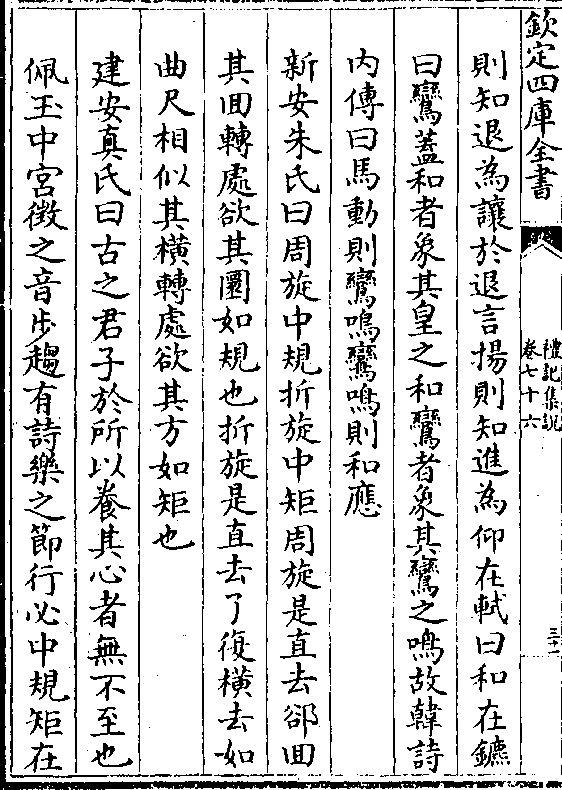 欽定四庫全書
禮記集說
卷七十六
三十一
則知退為讓於退言揚則知進為仰在軾曰和在鑣
曰鸞蓋和者象其皇之和鸞者象其鸞之鳴故韓詩
内傳曰馬動則鸞鳴鸞鳴則和應
新安朱氏曰周旋中規折旋中矩周旋是直去郤囘
其囘轉處欲其圜如規也折旋是直去了復橫去如
曲尺相似其橫轉處欲其方如矩也
建安真氏曰古之君子於所以養其心者無不至也
佩玉中宮徴之音步趨有詩樂之節行必中規矩在